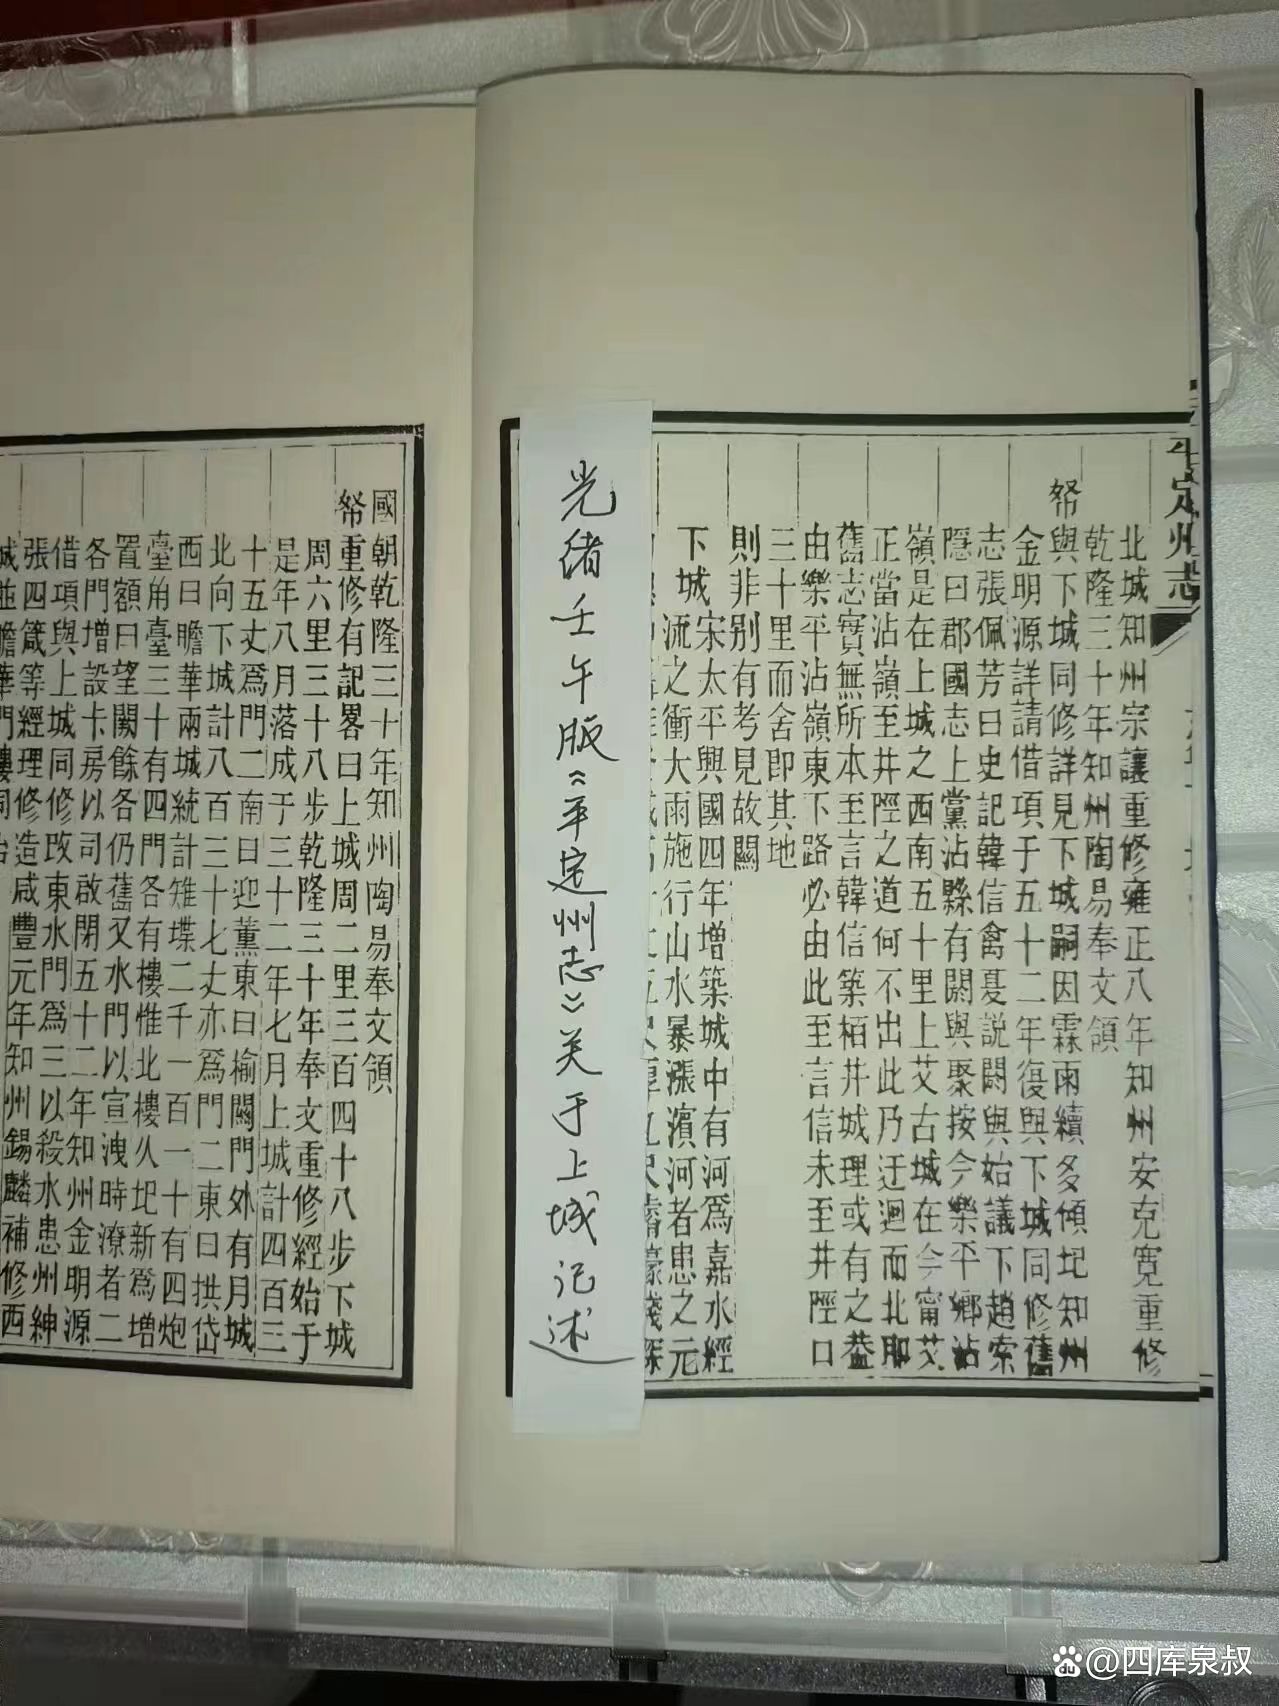 平定州志
北城知州宗讓重修雍正八年知州安克寬重修
乾隆三十年知州陶易奉文領
帑與下城同修詳見下城嗣因霖雨續多傾圮知州
金明源詳請借項于五十二年復與下城同修舊
志張佩芳曰史記韓信禽夏説閼與始議下趙索
隱曰郡國志上黨沾縣有閼與聚按今樂平鄉沾
嶺是在上城之西南五十里上艾古城在今甯艾
正當沾嶺至井陘之道何不出此乃迂迴而北耶
舊志實無所本至言韓信築栢井城理或有之葢
由樂平沾嶺東下路必由此至言信未至井陘口
三十里而舍即其地
則非别有考見故關
下城宋太平興國四年增築城中有河爲嘉水經
流之衝大雨施行山水暴漲濱河者患之元
光绪壬午版《平定州志》关于上城记述
國朝乾隆三十年知州陶易奉文領
帑重修有記畧曰上城周二里三百四十八步下城
周六里三十八步乾隆三十年奉文重修經始于
是年八月落成于三十二年七月上城計四百三
十五丈爲門二南曰迎薰東曰榆關門外有月城
北向下城計八百三十七丈亦爲門二東曰拱岱
西曰瞻華兩城統計雉堞二千一百一十有四炮
臺角臺三十有四門各有樓惟北樓久圮新爲增
置額曰望闕餘各仍舊又水門以宣洩時潦者二
各門增設卡房以司啟閉五十二年知州金明源
借項與上城同修改東水門爲三以殺水患州紳
張四箴等經理修造咸豐元年知州錫麟補修西
城並瞻華門樓同治
@四库泉叔